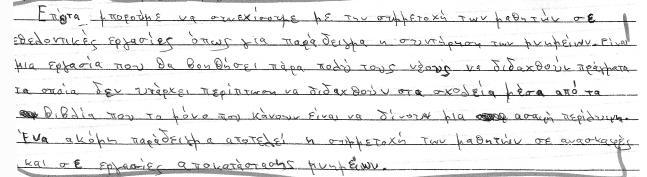 Έπειτα μπορούμε να συνεχίσουμε με την συμμετοχή των μαθητών σε
εθελοντικές εργασίες όπως για παράδειγμα η συντήρηση των μνημείων. Είναι
μια εργασία που θα βοηθήσει πάρα πολύ τους νέους να διδαχθούν πράγματα
τα οποία δεν υπάρχει περίπτωση να διδαχθούν στα σχολεία μέσα από τα
βιβλία που το μόνο που κάνουν είναι να δίνουν μια απλή περίληψη.
Ένα ακόμη παράδειγμα αποτελεί η συμμετοχή των μαθητών σε ανασκαφές
και σε εργασίες αποκατάστασης μνημείων.